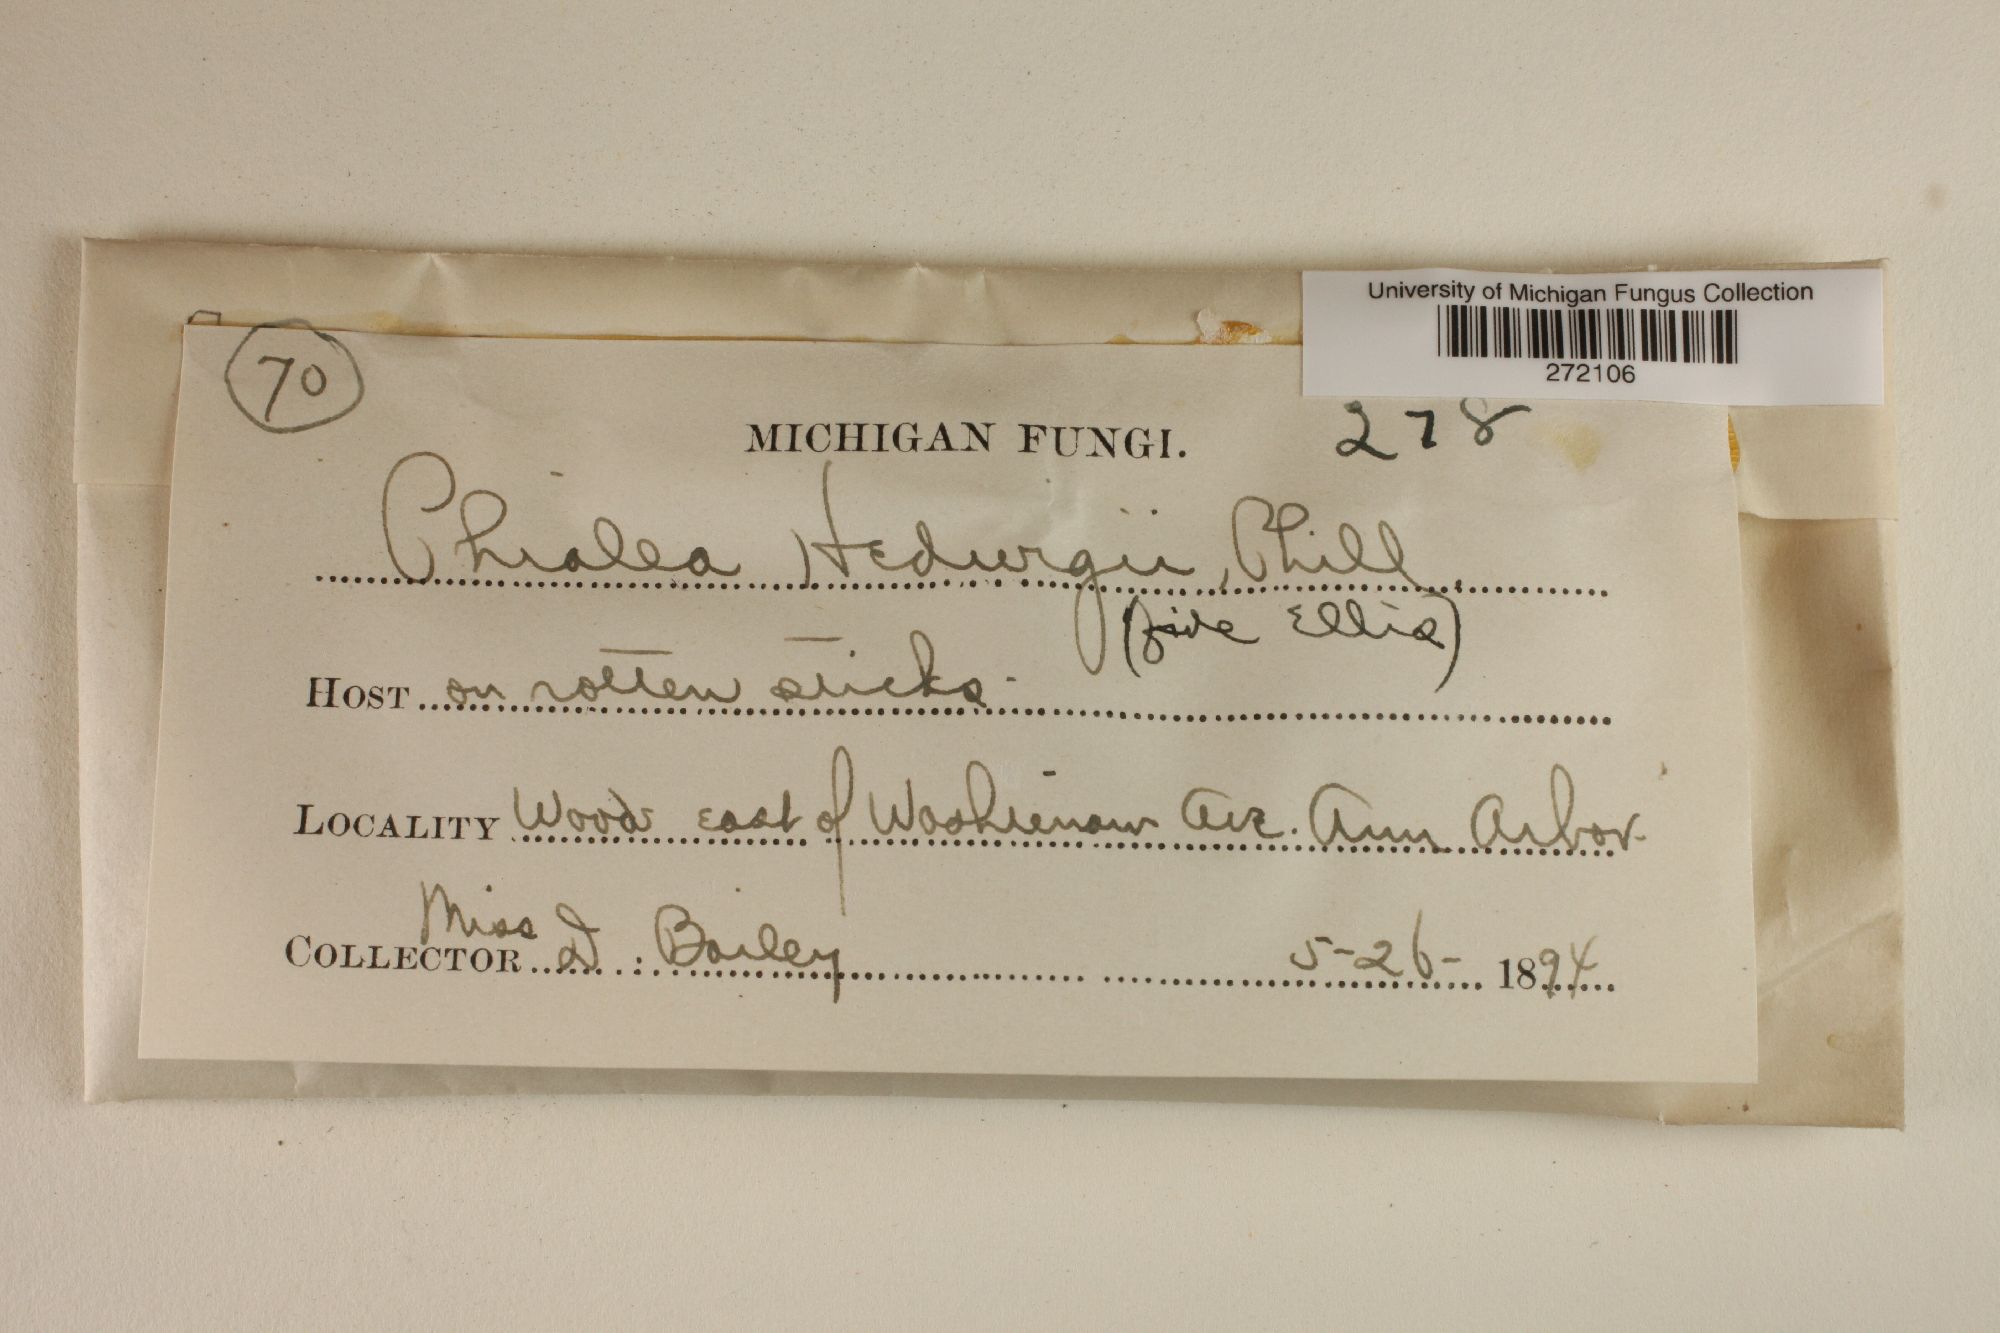 University of Michigan Fungus Collection
272106
70
MICHIGAN FUNGI.
278
Phialea Hedwigii, Phill.
(fide Ellis)
HOST on rotten sticks.
LOCALITY Woods east of Washtenaw Ave. Ann Arbor.
Miss
COLLECTOR D. Bailey 5-26- 1894